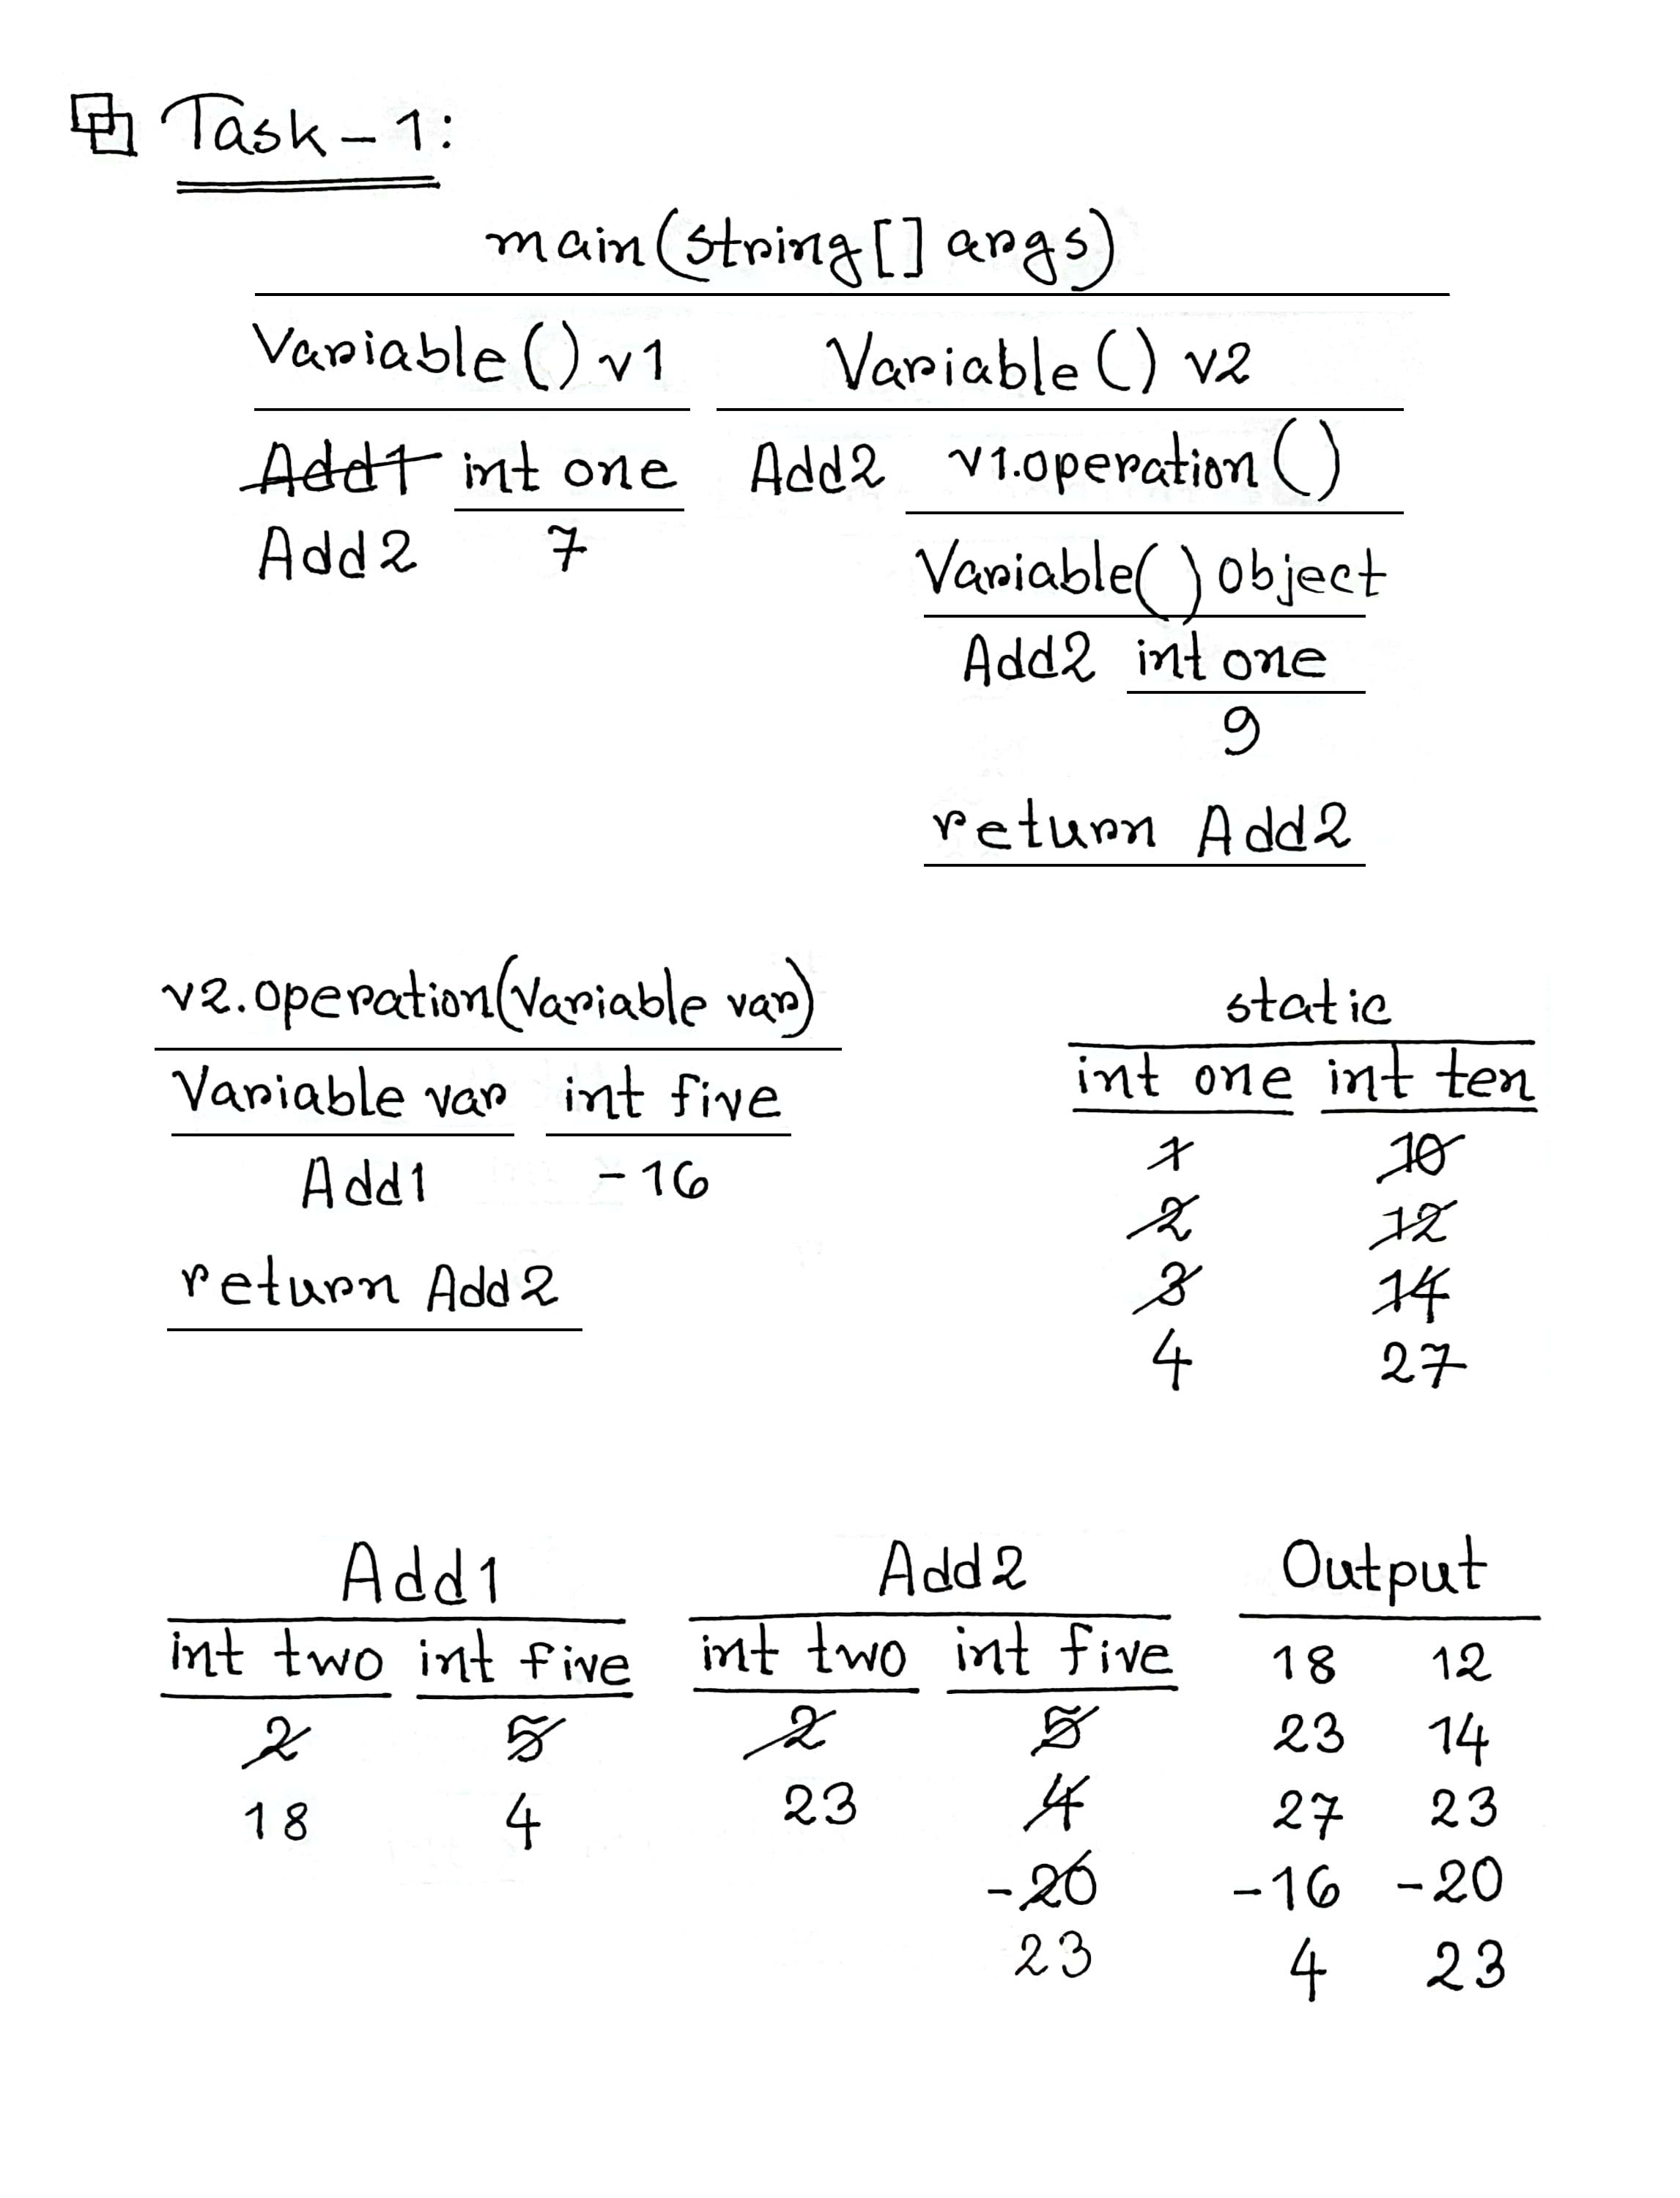 Task-1:
main(string[] args)
Variable() v1 Variable() v2
Add1 int one Add2 v1.operation()
Add2 7
Variable() Object
Add2 int one
9
return Add2
v2.operation(Variable var)
Variable var int five
Add1 -16
return Add2
static
int one int ten
1 10
2 12
3 14
4 27
Add1
int two int five
2 5
18 4
Add2
int two int five
2 5
23 4
-20
23
Output
18 12
23 14
27 23
-16 -20
4 23